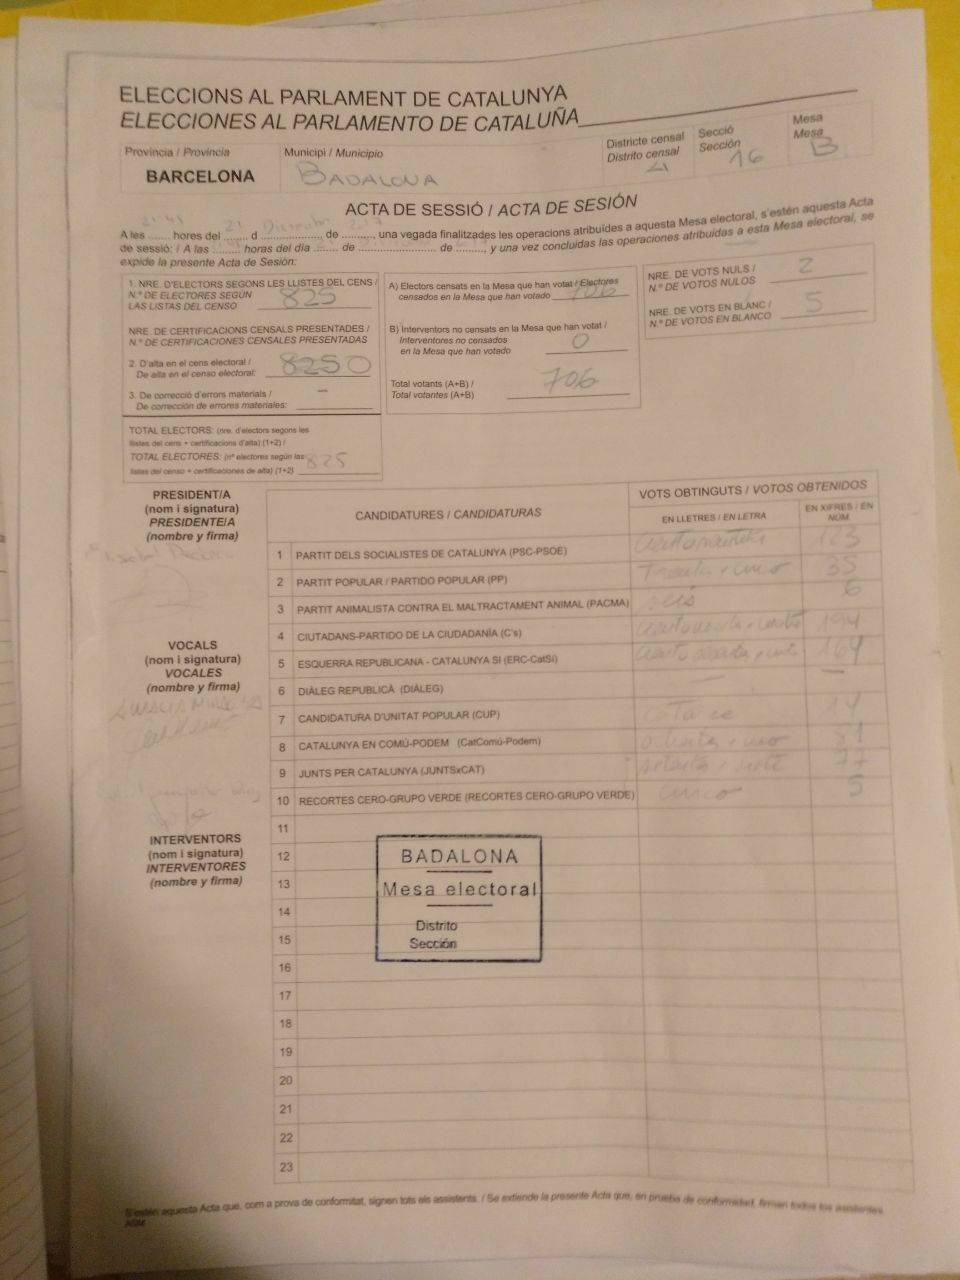 ELECCIONS AL PARLAMENT DE CATALUNYA
ELECCIONES AL PARLAMENTO DE CATALUÑA
Província / Provincia
BARCELONA
Municipi / Municipio
BADALONA
Districte censal
Distrito censal
Secció
Sección
16
Mesa
Mesa
B
ACTA DE SESSIÓ / ACTA DE SESIÓN
21 41 21 Diciembre
A les ........ hores del ........ d ..................... de .........., una vegada finalitzades les operacions atribuïdes a aquesta Mesa electoral, s'estén aquesta Acta
de sessió: / A las ......... horas del día ........ de ........................... de .........., y una vez concluidas las operaciones atribuidas a esta Mesa electoral, se
expide la presente Acta de Sesión:
1. NRE. D'ELECTORS SEGONS LES LLISTES DEL CENS /
N.º DE ELECTORES SEGÚN
LAS LISTAS DEL CENSO
825
NRE. DE CERTIFICACIONS CENSALS PRESENTADES /
N.º DE CERTIFICACIONES CENSALES PRESENTADAS
2. D'alta en el cens electoral /
De alta en el censo electoral:
825 0
3. De correcció d'errors materials /
De corrección de errores materiales:
–
TOTAL ELECTORS: (nre. d'electors segons les
llistes del cens + certificacions d'alta) (1+2) /
TOTAL ELECTORES: (nº electores según las
listas del censo + certificaciones de alta) (1+2)
825
A) Electors censats en la Mesa que han votat / Electores
censados en la Mesa que han votado
706
B) Interventors no censats en la Mesa que han votat /
Interventores no censados
en la Mesa que han votado
0
Total votants (A+B) /
Total votantes (A+B)
706
NRE. DE VOTS NULS /
N.º DE VOTOS NULOS
2
NRE. DE VOTS EN BLANC /
N.º DE VOTOS EN BLANCO
5
PRESIDENT/A
(nom i signatura)
PRESIDENTE/A
(nombre y firma)
VOCALS
(nom i signatura)
VOCALES
(nombre y firma)
INTERVENTORS
(nom i signatura)
INTERVENTORES
(nombre y firma)
CANDIDATURES / CANDIDATURAS
VOTS OBTINGUTS / VOTOS OBTENIDOS
EN LLETRES / EN LETRA
EN XIFRES / EN NÚM.
1 PARTIT DELS SOCIALISTES DE CATALUNYA (PSC-PSOE) 123
2 PARTIT POPULAR / PARTIDO POPULAR (PP) Treinta y cinco 35
3 PARTIT ANIMALISTA CONTRA EL MALTRACTAMENT ANIMAL (PACMA) seis 6
4 CIUTADANS-PARTIDO DE LA CIUDADANÍA (C's) 194
5 ESQUERRA REPUBLICANA - CATALUNYA SÍ (ERC-CatSí) 164
6 DIÀLEG REPUBLICÀ (DIÀLEG) — —
7 CANDIDATURA D'UNITAT POPULAR (CUP) catorce 14
8 CATALUNYA EN COMÚ-PODEM (CatComú-Podem) ochenta y uno 81
9 JUNTS PER CATALUNYA (JUNTSxCAT) setenta y siete 77
10 RECORTES CERO-GRUPO VERDE (RECORTES CERO-GRUPO VERDE) cinco 5
11
12
13
14
15
16
17
18
19
20
21
22
23
BADALONA
Mesa electoral
Distrito
Sección
S'estén aquesta Acta que, com a prova de conformitat, signen tots els assistents. / Se extiende la presente Acta que, en prueba de conformidad, firman todos los asistentes.